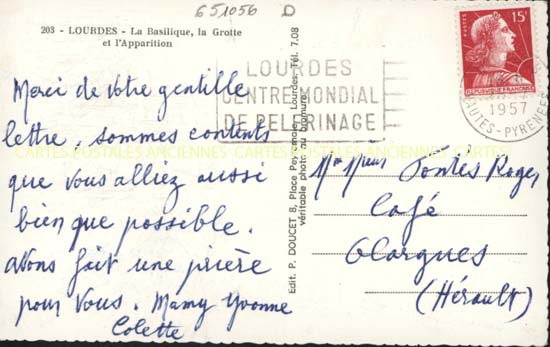 651056 D
203 - LOURDES - La Basilique, la Grotte
et l'Apparition
LOURDES
CENTRE MONDIAL
DE PELERINAGE
POSTES 15F
REPUBLIQUE FRANÇAISE
1957
HAUTES-PYRENEES
Merci de votre gentille
lettre, sommes contents
que vous alliez aussi
bien que possible.
Avons fait une prière
pour vous. Mamy Yvonne
Colette
CARTES POSTALES ANCIENNES CARTES POSTALES ANCIENNES CARTES POSTALES ANCIENNES
Edit. P. DOUCET 8, Place Peyramale, Lourdes, Tél. 7.08
véritable photo au bromure
Mr Mme Pontés Roger
Café
Olargues
(Hérault)